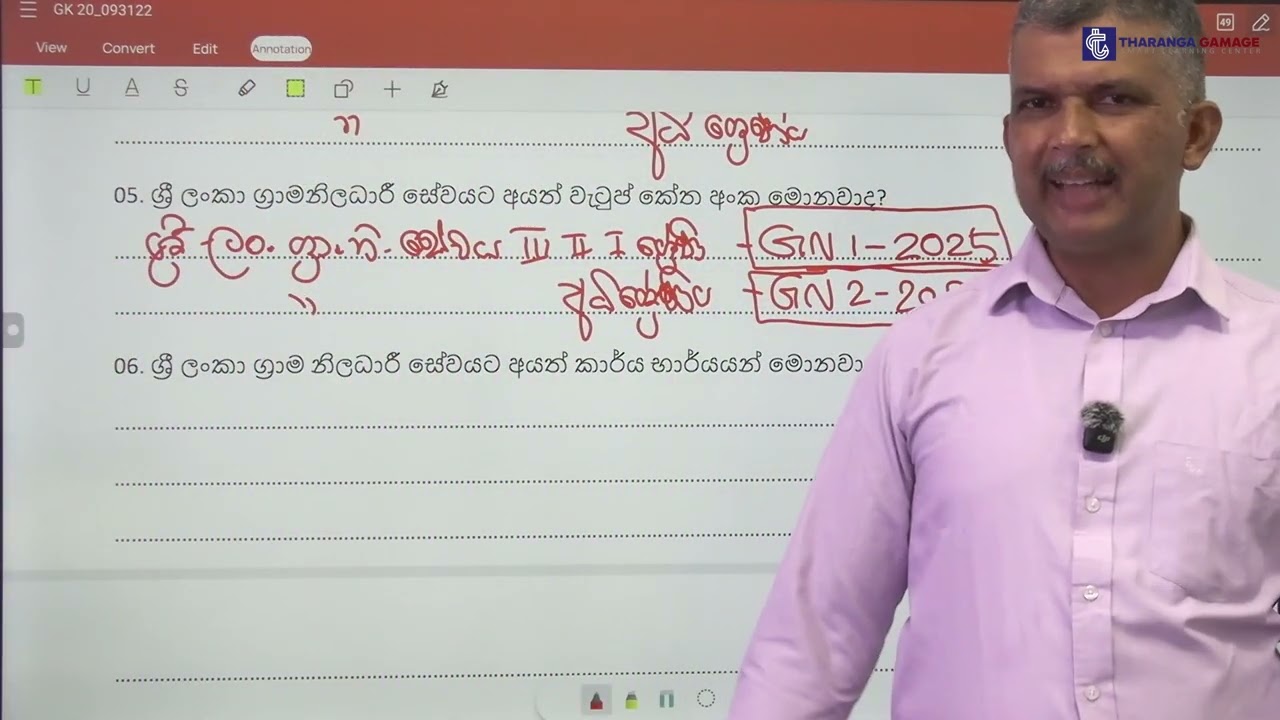 GK 20_093122
49
View Convert Edit Annotation
THARANGA GAMAGE
LEARNING CENTER
T U A S
"
අධි ශ්‍රේණිය
05. ශ්‍රී ලංකා ග්‍රාමනිලධාරී සේවයට අයත් වැටුප් කේත අංක මොනවාද?
ශ්‍රී ලං. ග්‍රා. නි. සේවය III II I ශ්‍රේණි - GN 1 - 2025
" අධිශ්‍රේණිය - GN 2 - 202
06. ශ්‍රී ලංකා ග්‍රාම නිලධාරී සේවයට අයත් කාර්ය භාර්යයන් මොනවා